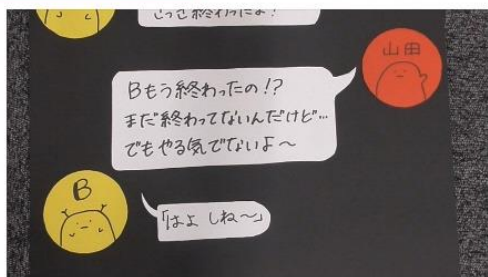 さっき終わったよ!
山田
Bもう終わったの!?
まだ終わってないんだけど…
でもやる気でないよ～
B
「はよ しね～」